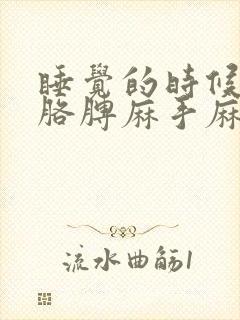 睡覺的時候
胳膊麻手麻
流水曲觞1